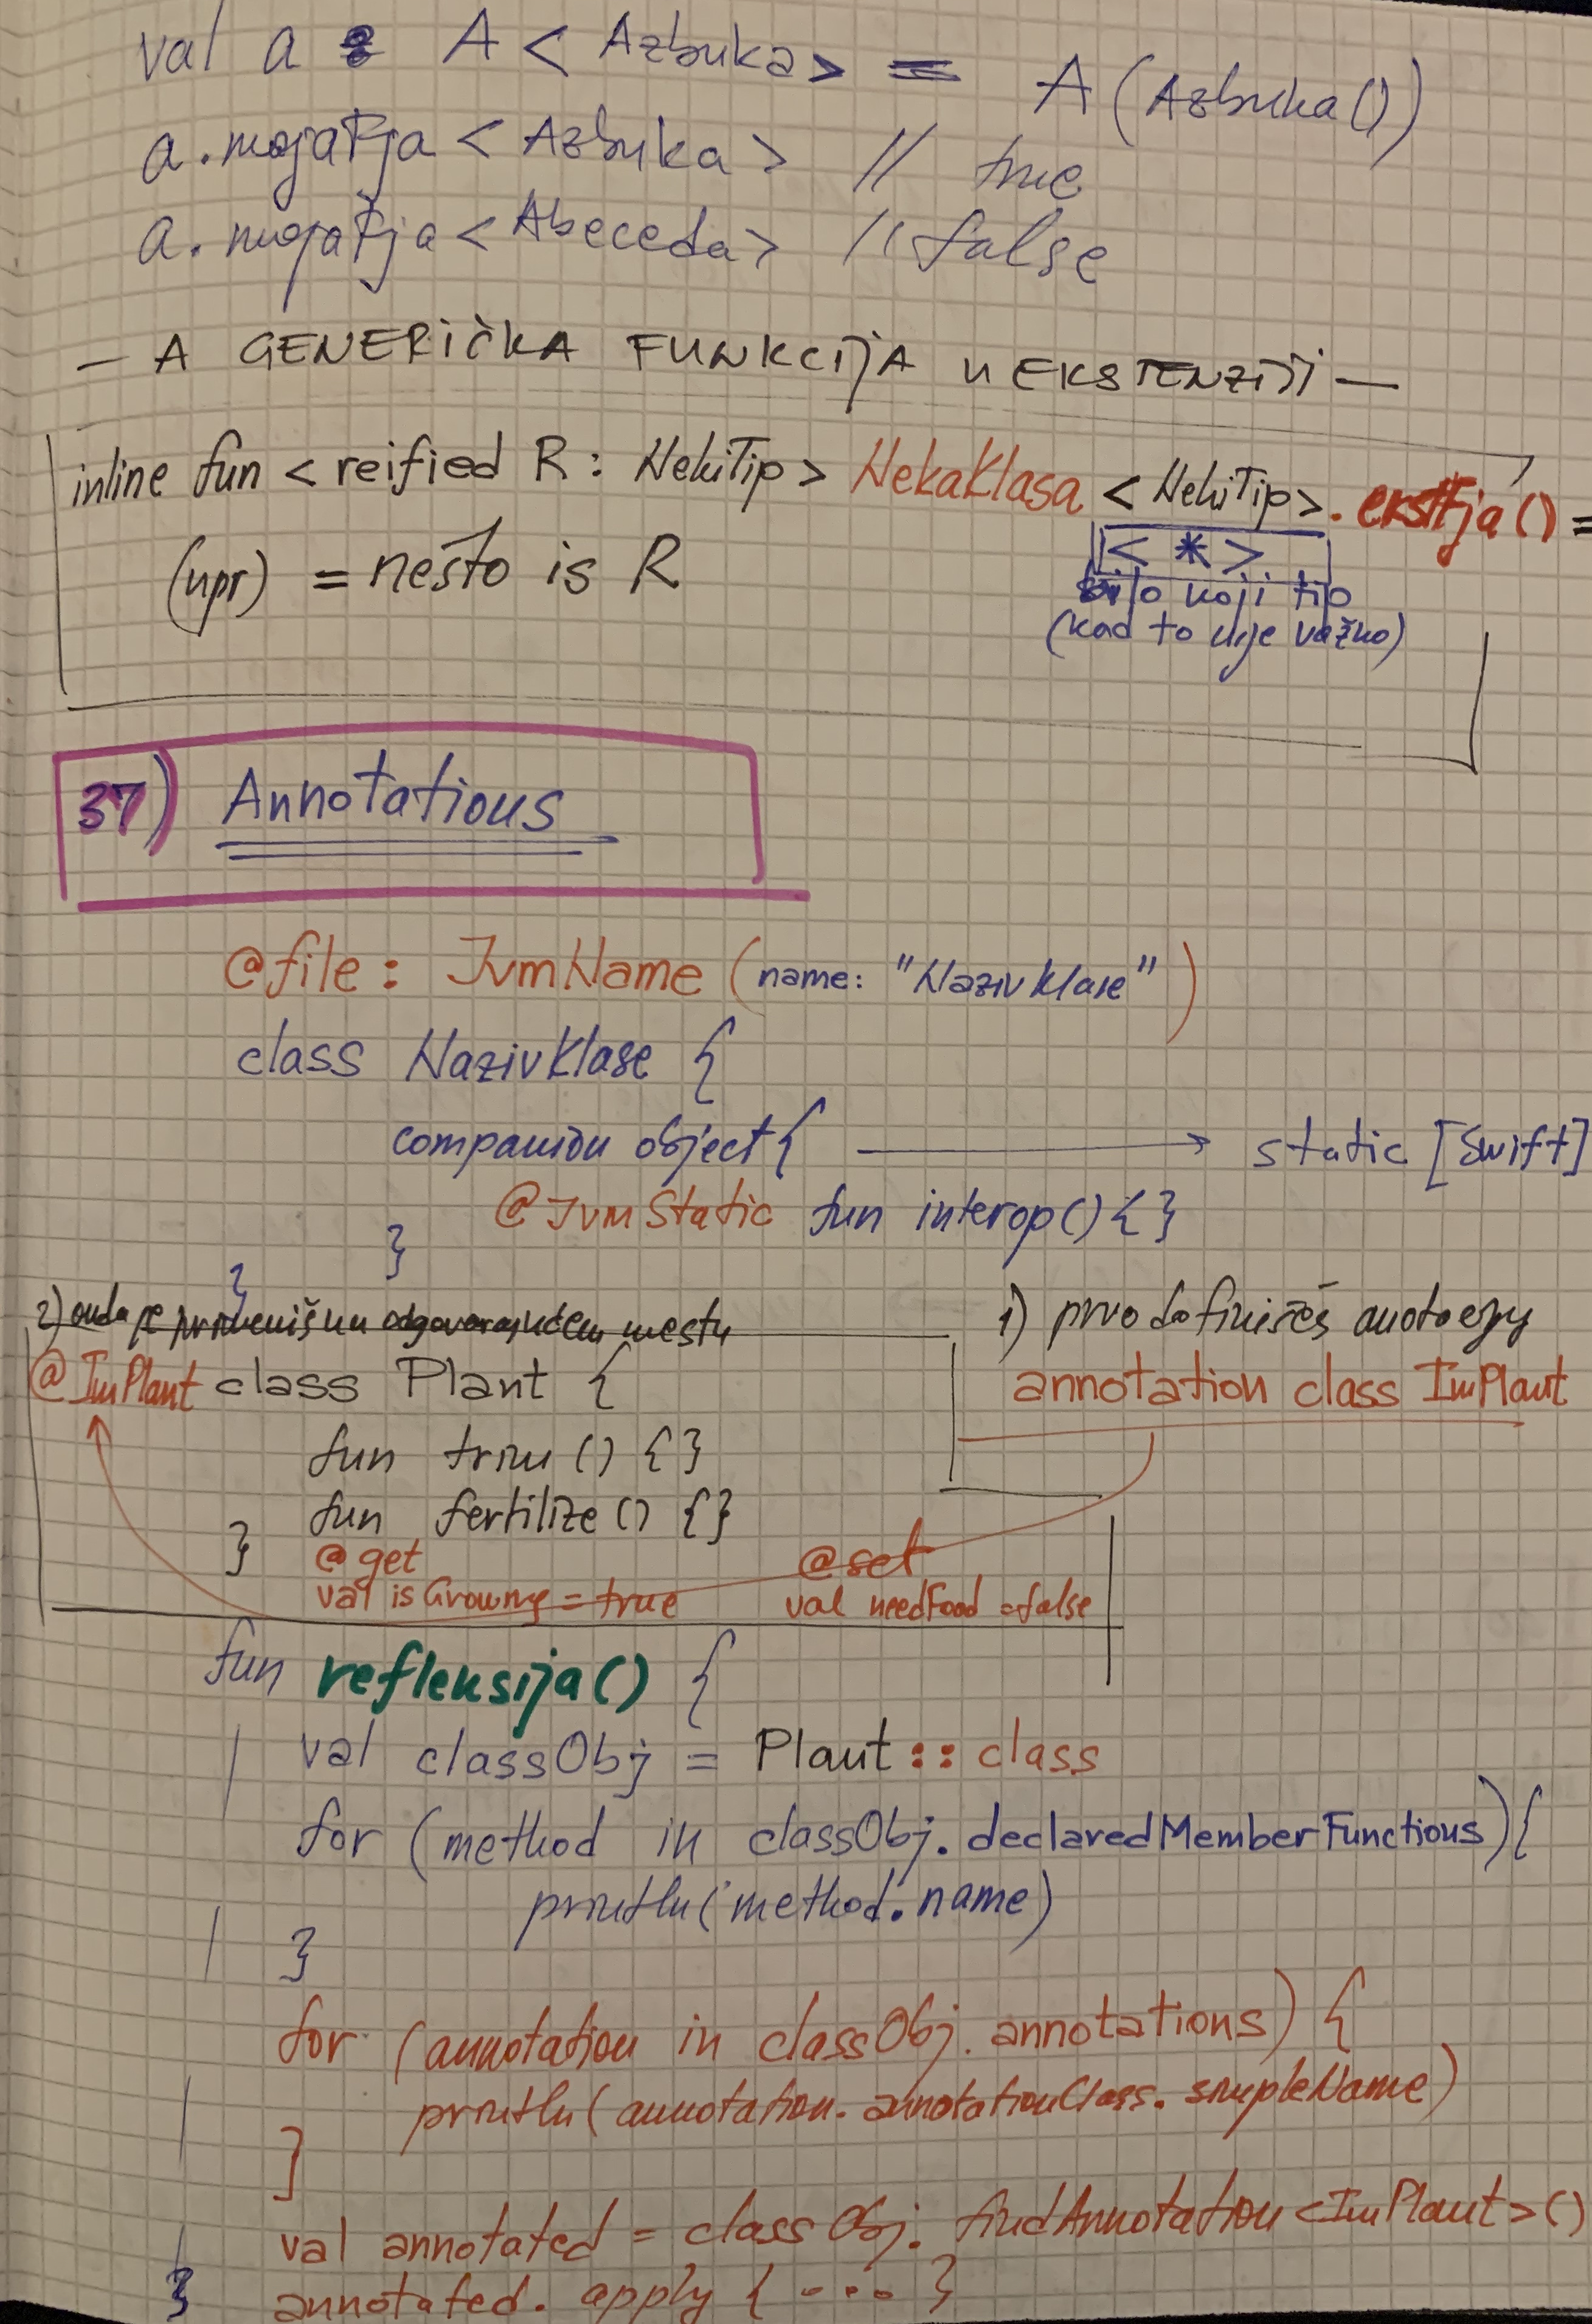 val a : A < Azbuka > = A (Azbuka())
a.mojaFja < Azbuka > // true
a.mojaFja < Abeceda > // false
— A GENERIČKA FUNKCIJA U EKSTENZIJI —
inline fun < reified R : NekiTip > NekaKlasa < NekiTip > . ekstFja () =
< * >
(npr) = nešto is R
bilo koji tip
(kad to nije važno)
37) Annotations
@file : JvmName (name: "NazivKlase")
class NazivKlase {
companion object { → static [Swift]
@JvmStatic fun interop() { }
}
}
2) onda je primeniš na odgovarajućem mestu
1) prvo definišeš
@ImPlant class Plant {
annotation class ImPlant
fun trim () { }
fun fertilize () { }
}
@get
@set
val isGrowing = true
val needFood = false
fun refleksija() {
val classObj = Plant :: class
for (method in classObj. declaredMemberFunctions) {
println(method.name)
}
for (annotation in classObj. annotations) {
println(annotation. annotationClass. simpleName)
}
val annotated = classObj. findAnnotation <ImPlant> ()
annotated. apply { ... }
}